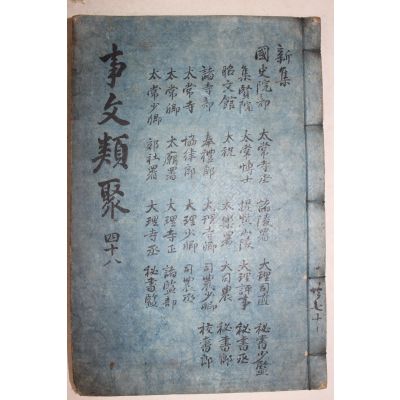 新集
國史院部 太常寺丞 諸陵署 大理司直 秘書少監
集賢院 太常博士 提點山陵 大理評事 秘書丞
昭文館 太祝 太樂署 大司農 秘書郎
諸寺部 奉禮郎 大理寺卿 司農少卿 校書郎
太常寺 協律郎 大理少卿 司農丞
太常卿 太廟署 大理寺正 諸監部
太常少卿 郊社署 大理寺丞 秘書監
事文類聚 四十八